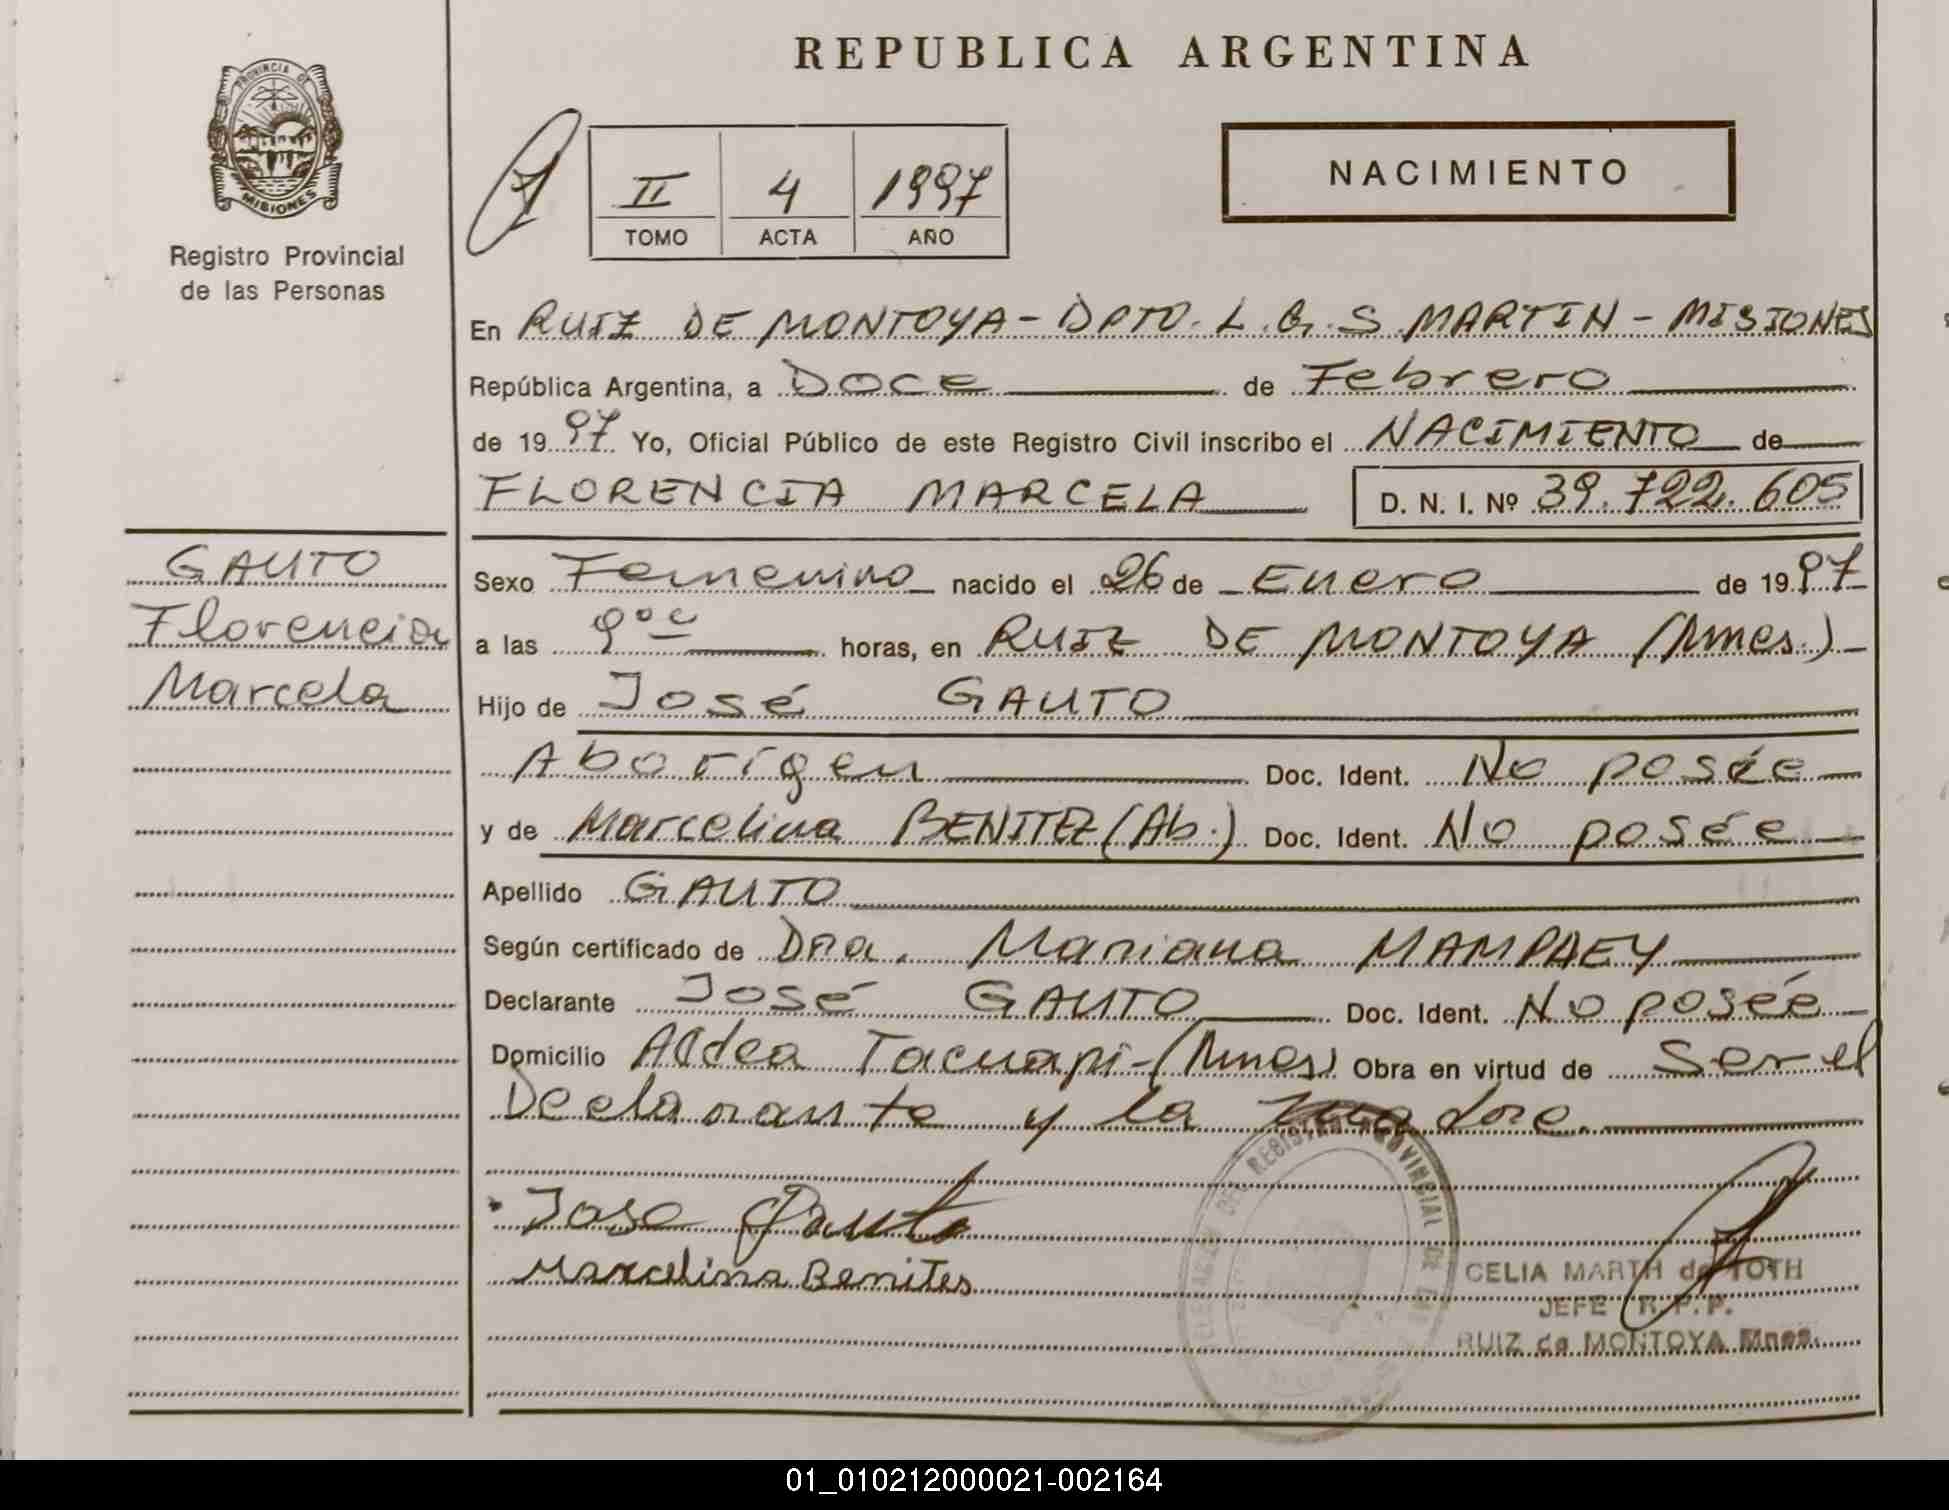 REPUBLICA ARGENTINA
PROVINCIA DE
MISIONES
Registro Provincial
de las Personas
II 4 1997
TOMO ACTA AÑO
NACIMIENTO
En RUIZ DE MONTOYA - DPTO. L.G.S. MARTIN - MISIONES
República Argentina, a Doce de Febrero
de 1997 Yo, Oficial Público de este Registro Civil inscribo el NACIMIENTO de
FLORENCIA MARCELA D. N. I. Nº 39.722.605
GAUTO
Florencia
Marcela
Sexo Femenino nacido el 26 de Enero de 1997
a las 9 horas, en RUIZ DE MONTOYA (Mnes.)
Hijo de José GAUTO
Aborígen Doc. Ident. No posée
y de Marcelina BENITEZ (Ab.) Doc. Ident. No posée
Apellido GAUTO
Según certificado de Dra. Mariana MAMPAEY
Declarante José GAUTO Doc. Ident. No posée
Domicilio Aldea Tacuapi - (Mnes) Obra en virtud de Ser el
Declarante y la madre.
Jose Gauto
Marcelina Benites
DEL REGISTRO PROVINCIAL DE LAS
CELIA MARTH de TOTH
JEFE R.P.P.
RUIZ de MONTOYA Mnes.
01_010212000021-002164